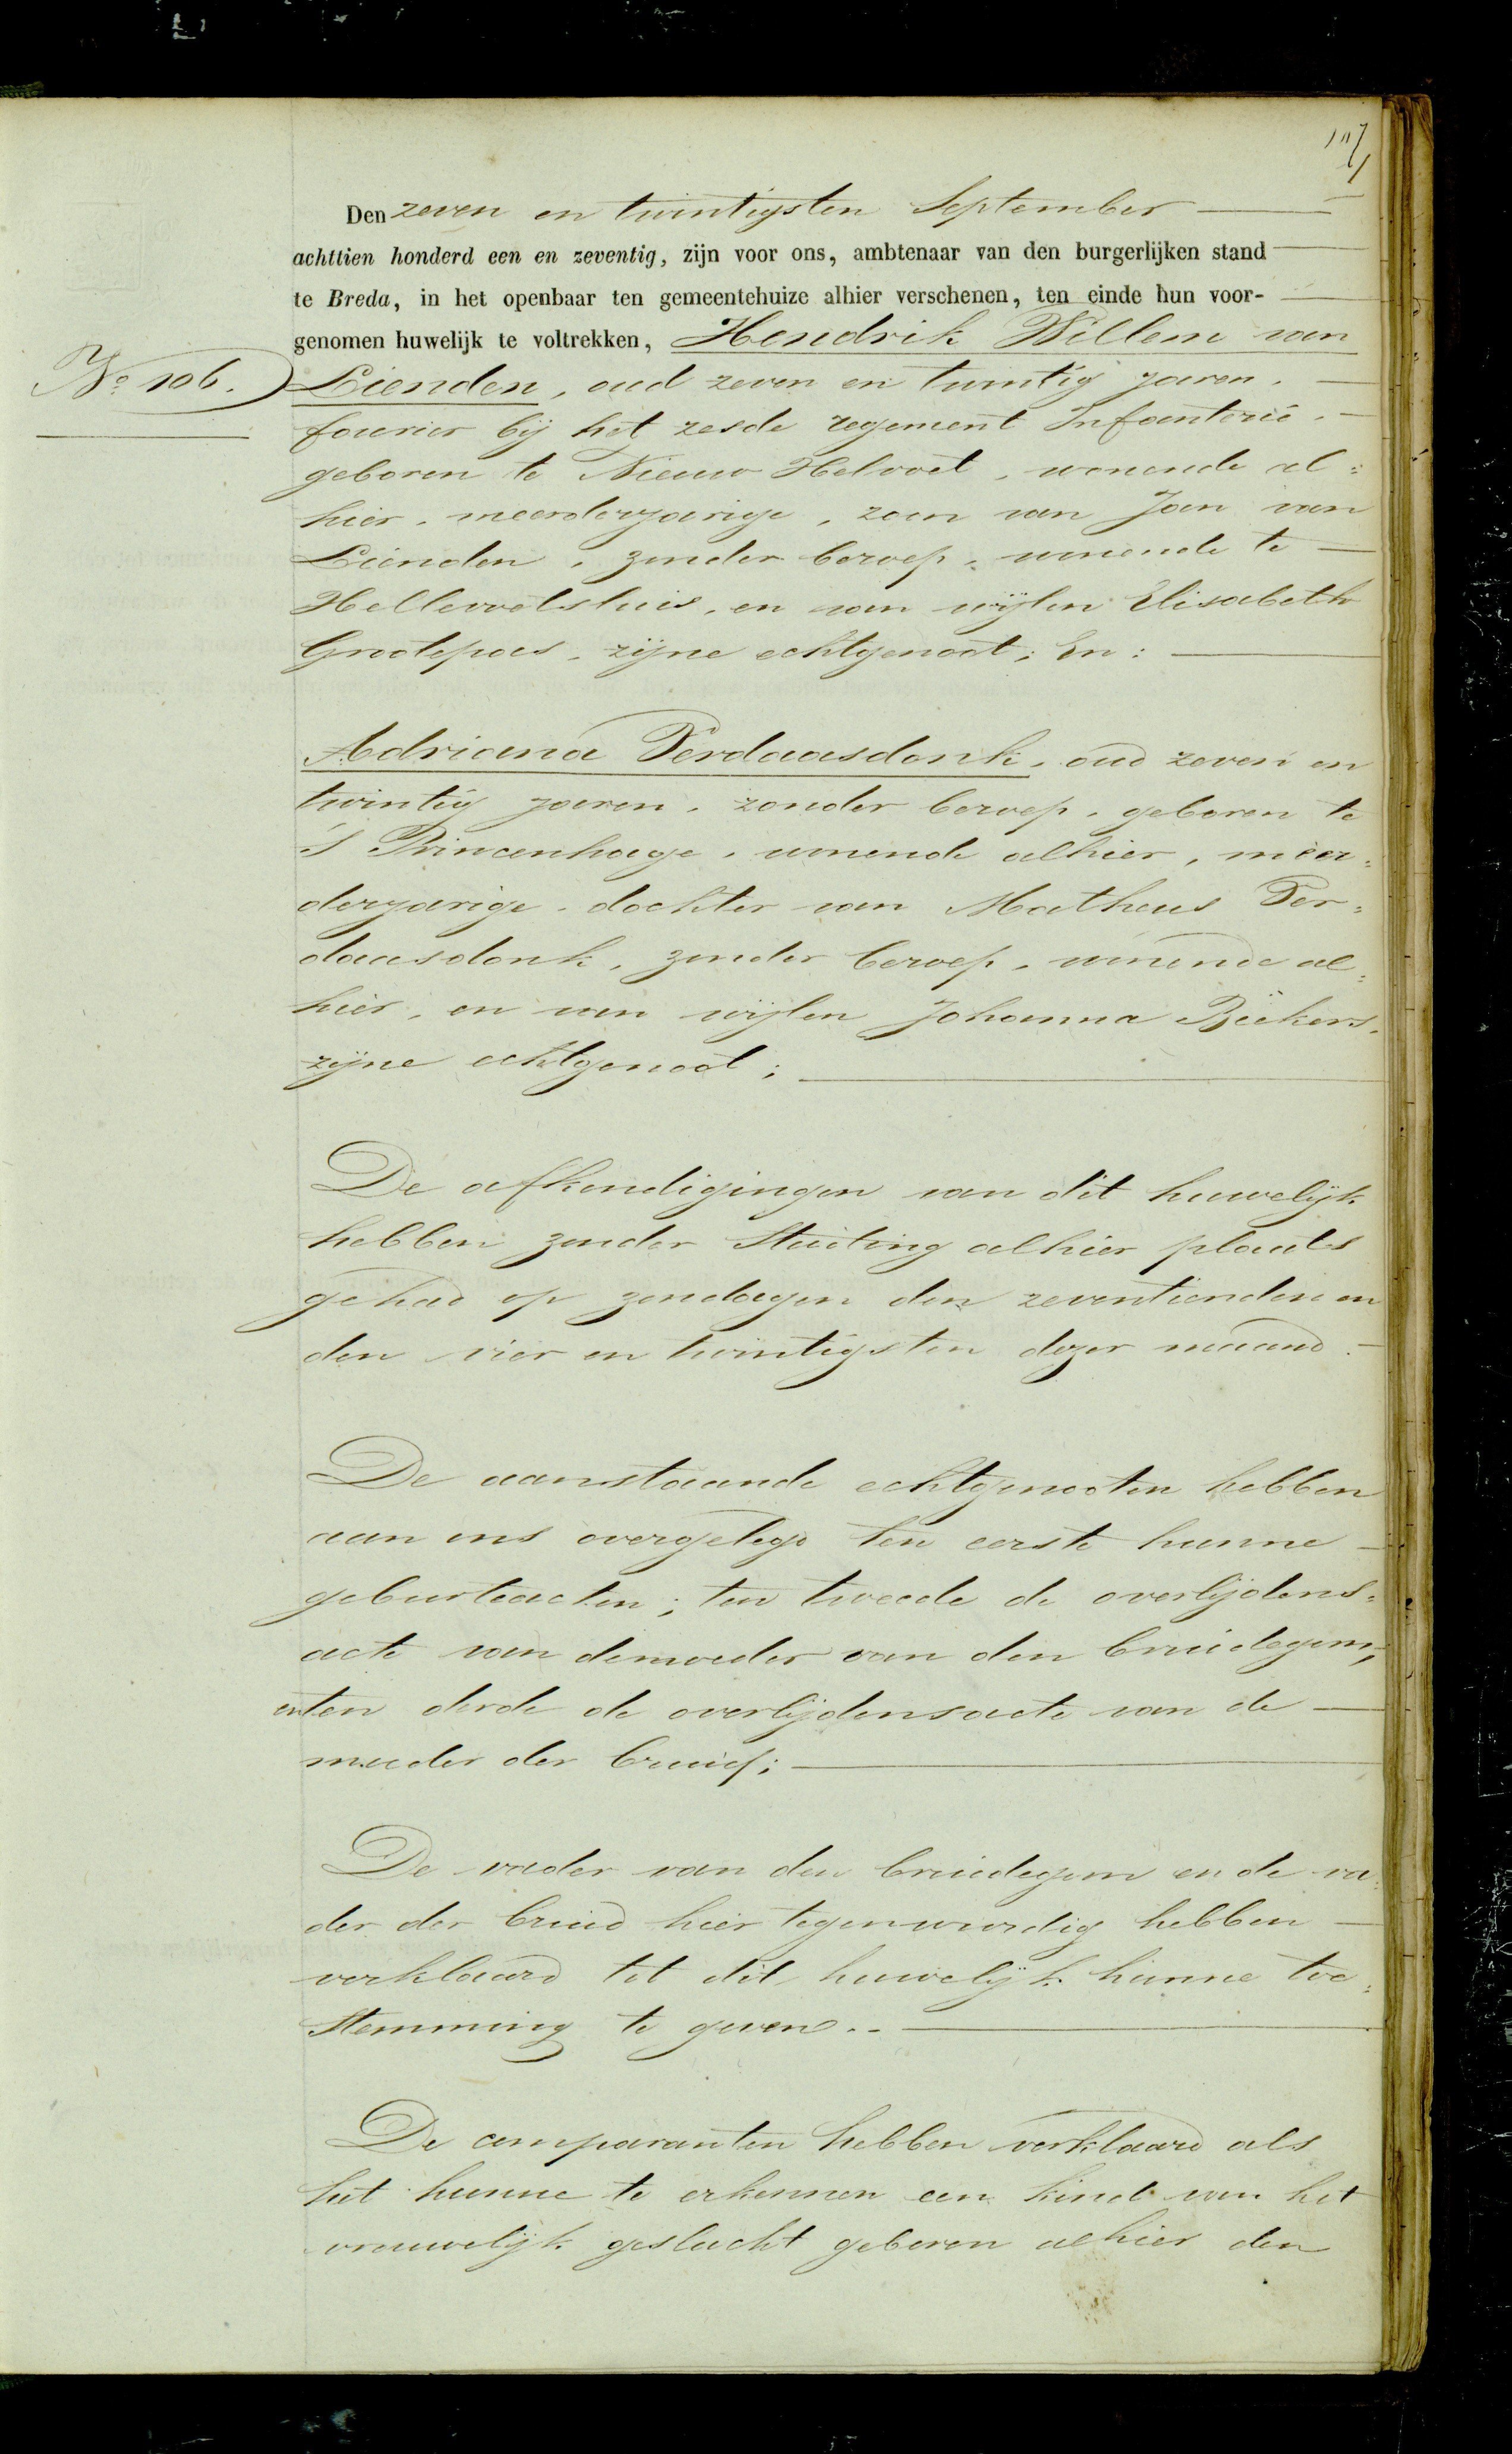 Den zeven en twintigsten September
achttien honderd een en zeventig, zijn voor ons, ambtenaar van den burgerlijken stand
te Breda, in het openbaar ten gemeentehuize alhier verschenen, ten einde hun voor-
genomen huwelijk te voltrekken, Hendrik Willem van
No 106.
Lienden, oud zeven en twintig jaren,
fourier bij het zesde regement Infanterie,
geboren te Nieuw Helvoet, wonende al=
hier, meerderjarige, zoon van Jan van
Lienden, zonder beroep, wonende te
Hellevoetsluis, en van wijlen Elisabeth
Grootepoes, zijne echtgenoot; En:
Adriana Verdaasdonk, oud zeven en
twintig jaren, zonder beroep, geboren te
'S Princenhage, wonende alhier, meer=
derjarige, dochter van Matheus Ver=
daasdonk, zonder beroep, wonende al=
hier, en van wijlen Johanna Rijkers,
zijne echtgenoot;
De afkondigingen van dit huwelijk
hebben zonder Stuiting alhier plaats
gehad op zondagen den zeventienden en
den vier en twintigsten dezer maand.
De aanstaande echtgenooten hebben
aan ons overgelegd ten eerste hunne
geburteacten; ten tweede de overlijdens=
acte van demoeder van den bruidegom,
enten derde de overlijdensacte van de
moeder der bruid;
De vader van den bruidegom en de va=
der der bruid hier tegenwoordig hebben
verklaard tot dit huwelijk hunne toe=
stemming te geven.
De comparanten hebben verklaard als
het hunne te erkennen een kind van het
vrouwelijk geslacht geboren alhier den